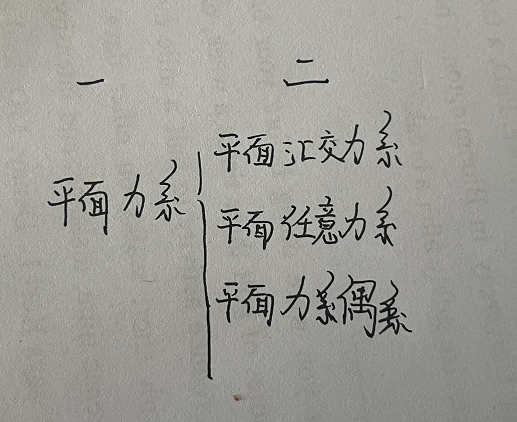 一 二
平面汇交力系
平面力系
平面任意力系
平面力系偶系